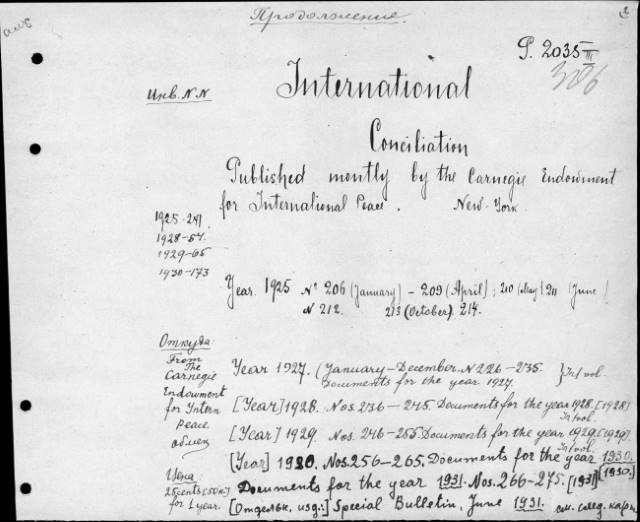 Продолжение.
P. 2035 III
386
Инв. N.N
International
Conciliation
Published montly by the Carnegie Endowment
for International Peace. New-York
1925-241
1928-57.
1929-65
1930-173
Year. 1925 No 206 (January) - 209 (April); 210 (May) 211 (June)
N 212. 213 (October). 214.
Откуда:
From
The
Carnegie
Endowment
for Intern
Peace
обмен
Year 1927. (January-December. N 226-235. } In 1 vol.
Documents for the year 1927.
[Year] 1928. Nos. 236-245. Documents for the year 1928. [1928]
In 1 vol.
[Year] 1929. Nos. 246-255. Documents for the year 1929. [1929].
In 1 vol.
[Year] 1930. Nos. 256-265. Documents for the year 1930.
[1930.]
Цена
25 cents (50к.)
for 1 year.
Documents for the year 1931. Nos. 266-275. [1931]
[Отдельн. изд.:] Special Bulletin, June 1931. см. след. карт.